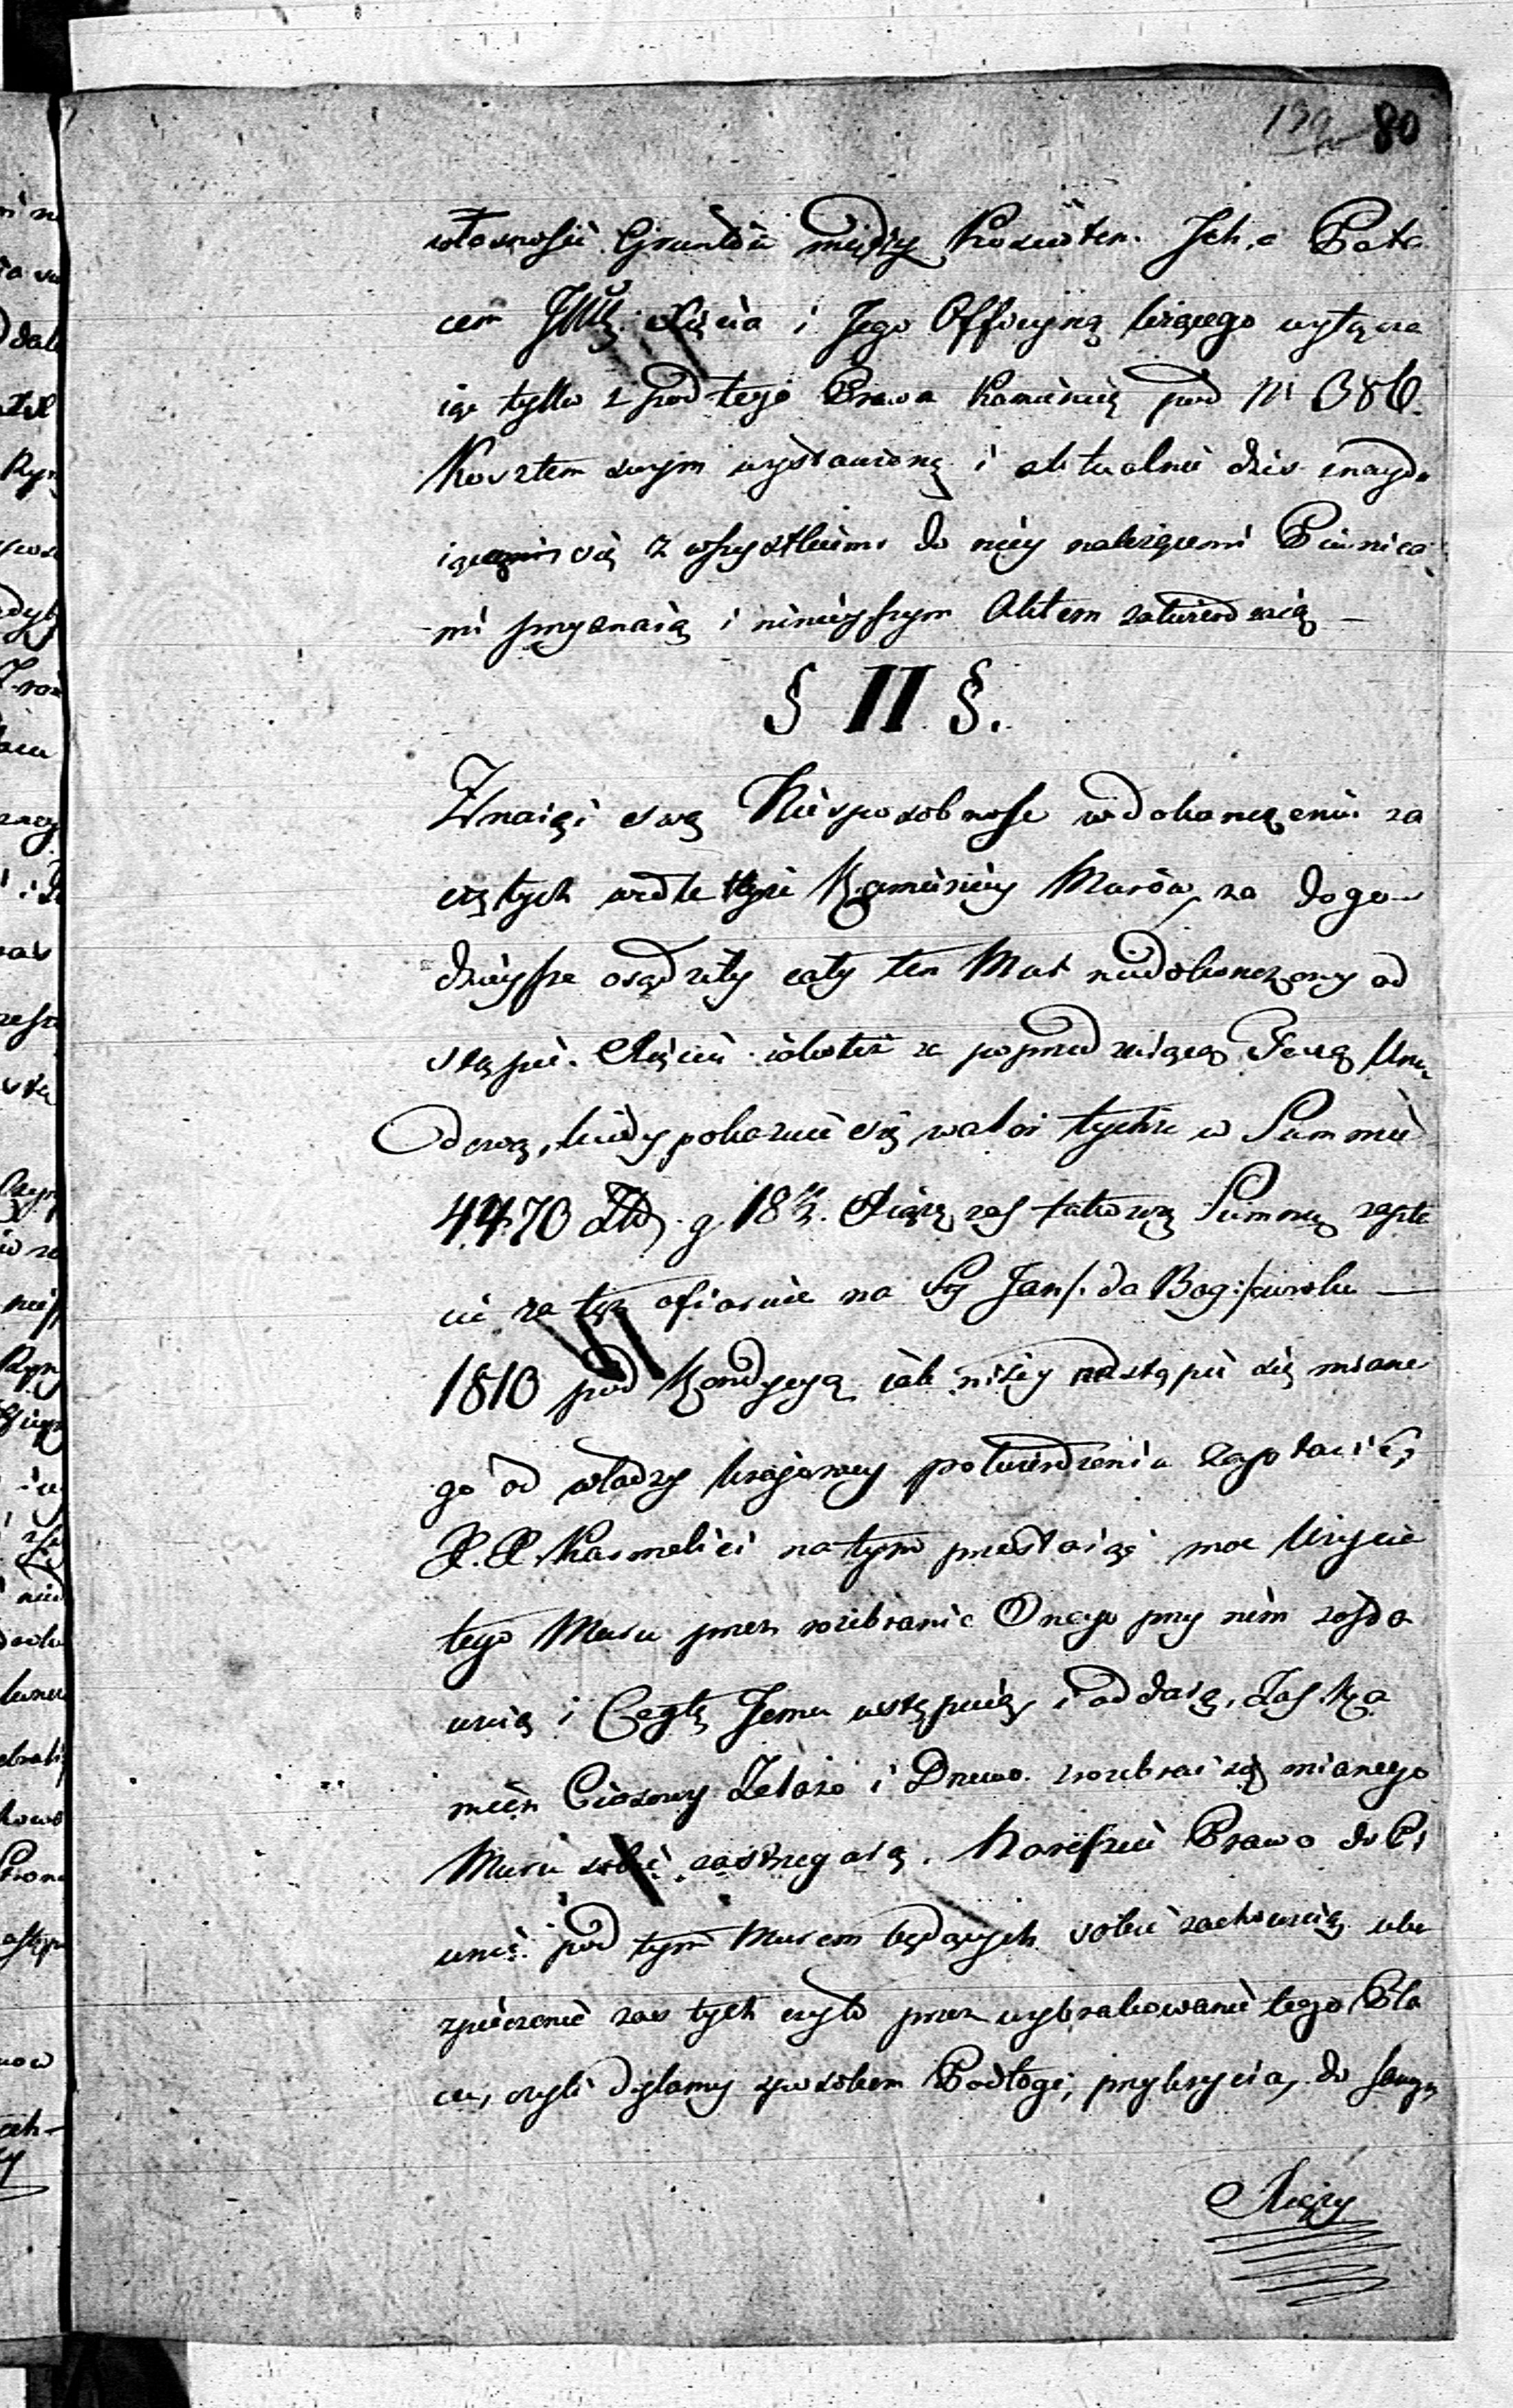 80
własności Gruntów między Kościołem Ich, a Pała
cem Xięcia i Jego Officyną leżącego wyłącza
iąc tylko z pod tego Prawa Kamienicę pod Nr 386.
Kosztem swym wystawioną i aktualnie dziś znayd
się z wszystkiemi do niey należącemi Piwnica
mi przyznaią i ninieyszym Aktem zatwierdzaią —
§ II §.
Znaiąc swą Niesposobność w dokończeniu za
czętych wedle teyże Kamienicy Murów, za dogo
dnieysze osądziły cały ten Mur niedokończony od
stąpić Xięciu iakoteż za poprzedzaiącą Taxą
Odezwą, kiedy pokazuie się walor tychże w Summie
4470 Złt. g. 18 Xiąże zaś takową Summę zapła
cić za tęż ofiaruie na Sty Jan /: da Bog :/ w roku —
1810 pod Kondycyą iak niżey nastąpić się miane
go od władzy kraiowey potwierdzenia zapłacić,
X.X. Karmelici na tym przestaiąc moc Użycia
tego Muru przez rozebranie Onego przy nim
i Cegłę Jemu ustępuią, i oddaią, Zaś Ka
mień Ciosowy Żelazo i Drzewo z rozebrać się mianego
Muru sobie zastrzegaią. Nareszcie Prawo do Pi
wnic pod tym Murem będących sobie zachowuią ube
zpieczenie zaś tych czyto przez wybrukowanie tego Pla
cu, czyli dylamy sposobem Podłogi, przykrycia, do
Xięży